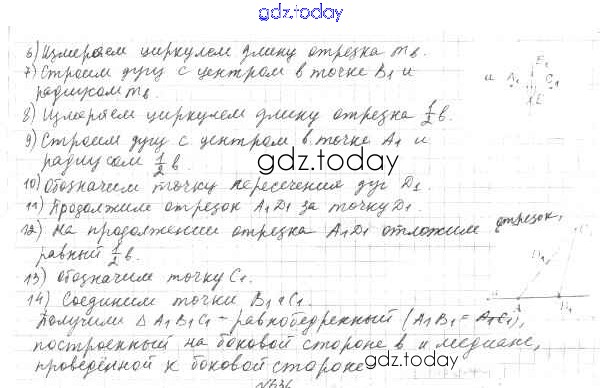 gdz.today
6) Измеряем циркулем длину отрезка m_b.
7) Строим дугу с центром в точке B₁ и
радиусом m_b.
и A₁ C₁
E₁
E
8) Измеряем циркулем длину отрезка ½b.
9) Строим дугу с центром в точке A₁ и
радиусом ½b.
gdz.today
10) Обозначим точку пересечения дуг D₁.
11) Продолжим отрезок A₁D₁ за точку D₁.
12) На продолжении отрезка A₁D₁ отложим отрезок,
равный ½b.
13) Обозначим точку C₁.
14) Соединим точки B₁ и C₁.
Получили Δ A₁B₁C₁ – равнобедренный (A₁B₁ = A₁C₁),
построенный на боковой стороне b и медиане,
проведённой к боковой стороне
gdz.today
№636